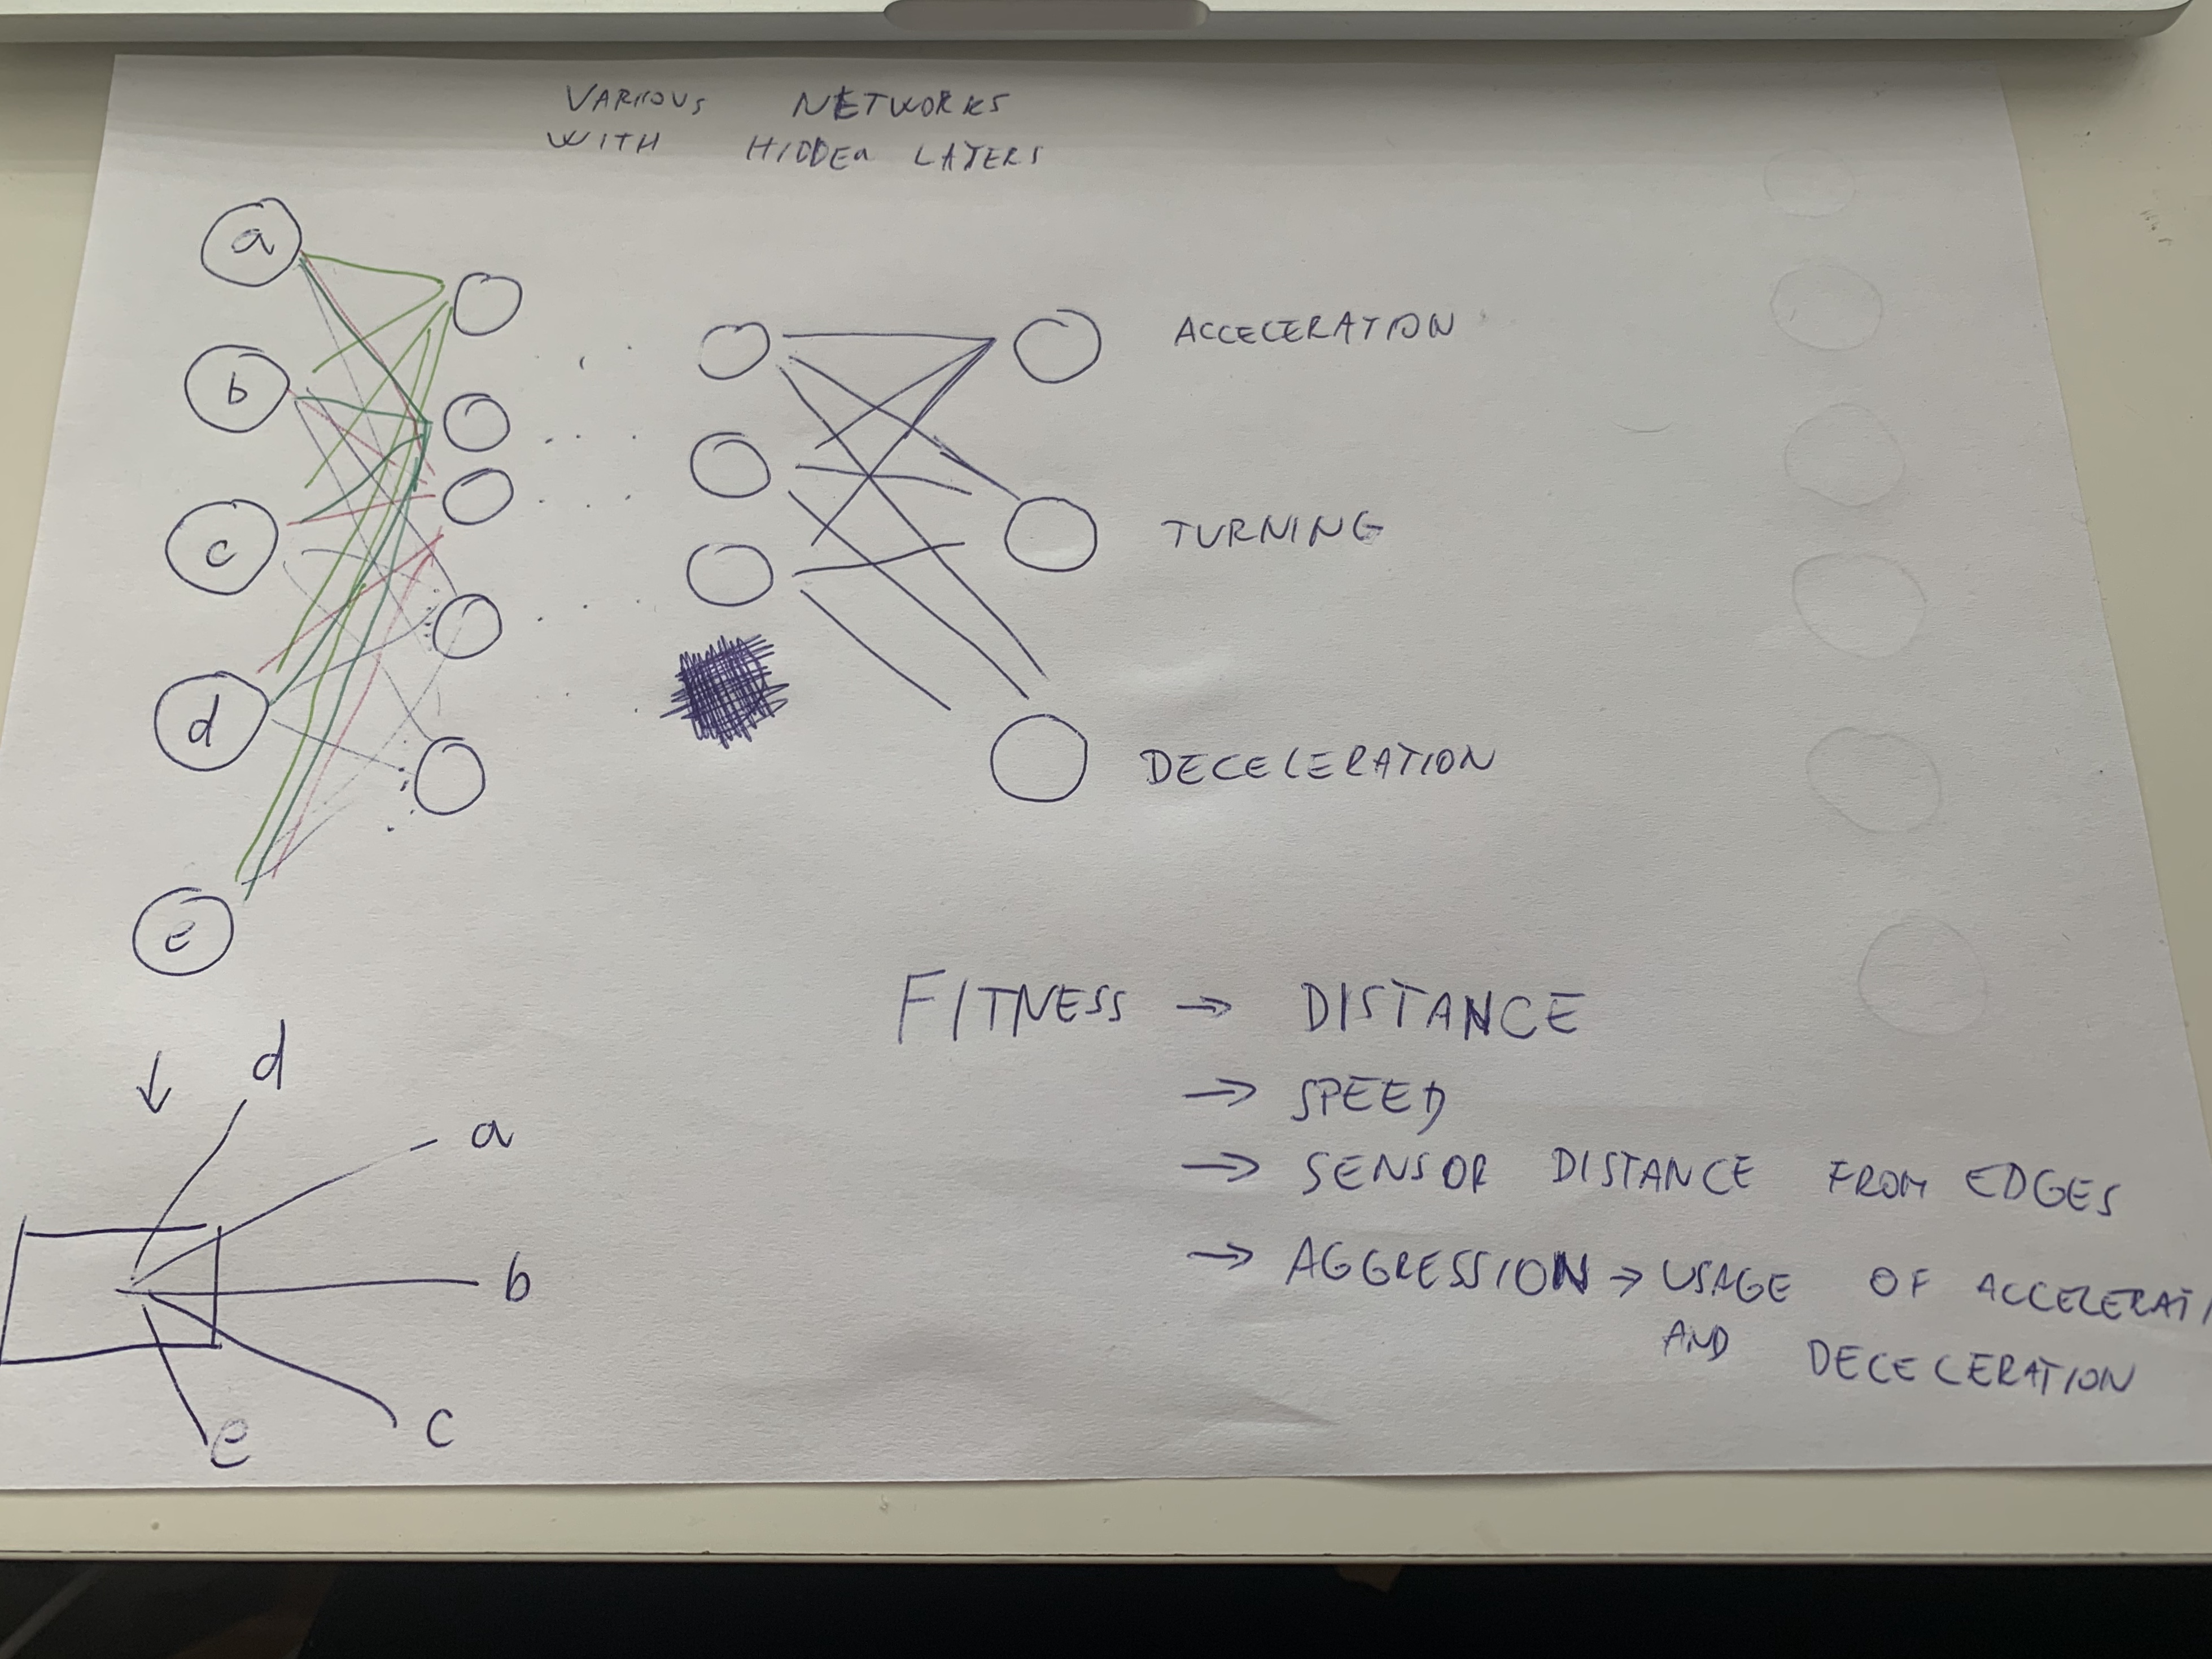 VARIOUS NETWORKS
WITH HIDDEN LAYERS
a
b
c
d
e
ACCELERATION
TURNING
DECELERATION
d
a
b
c
e
FITNESS → DISTANCE
→ SPEED
→ SENSOR DISTANCE FROM EDGES
→ AGGRESSION → USAGE OF ACCELERATI
AND DECELERATION